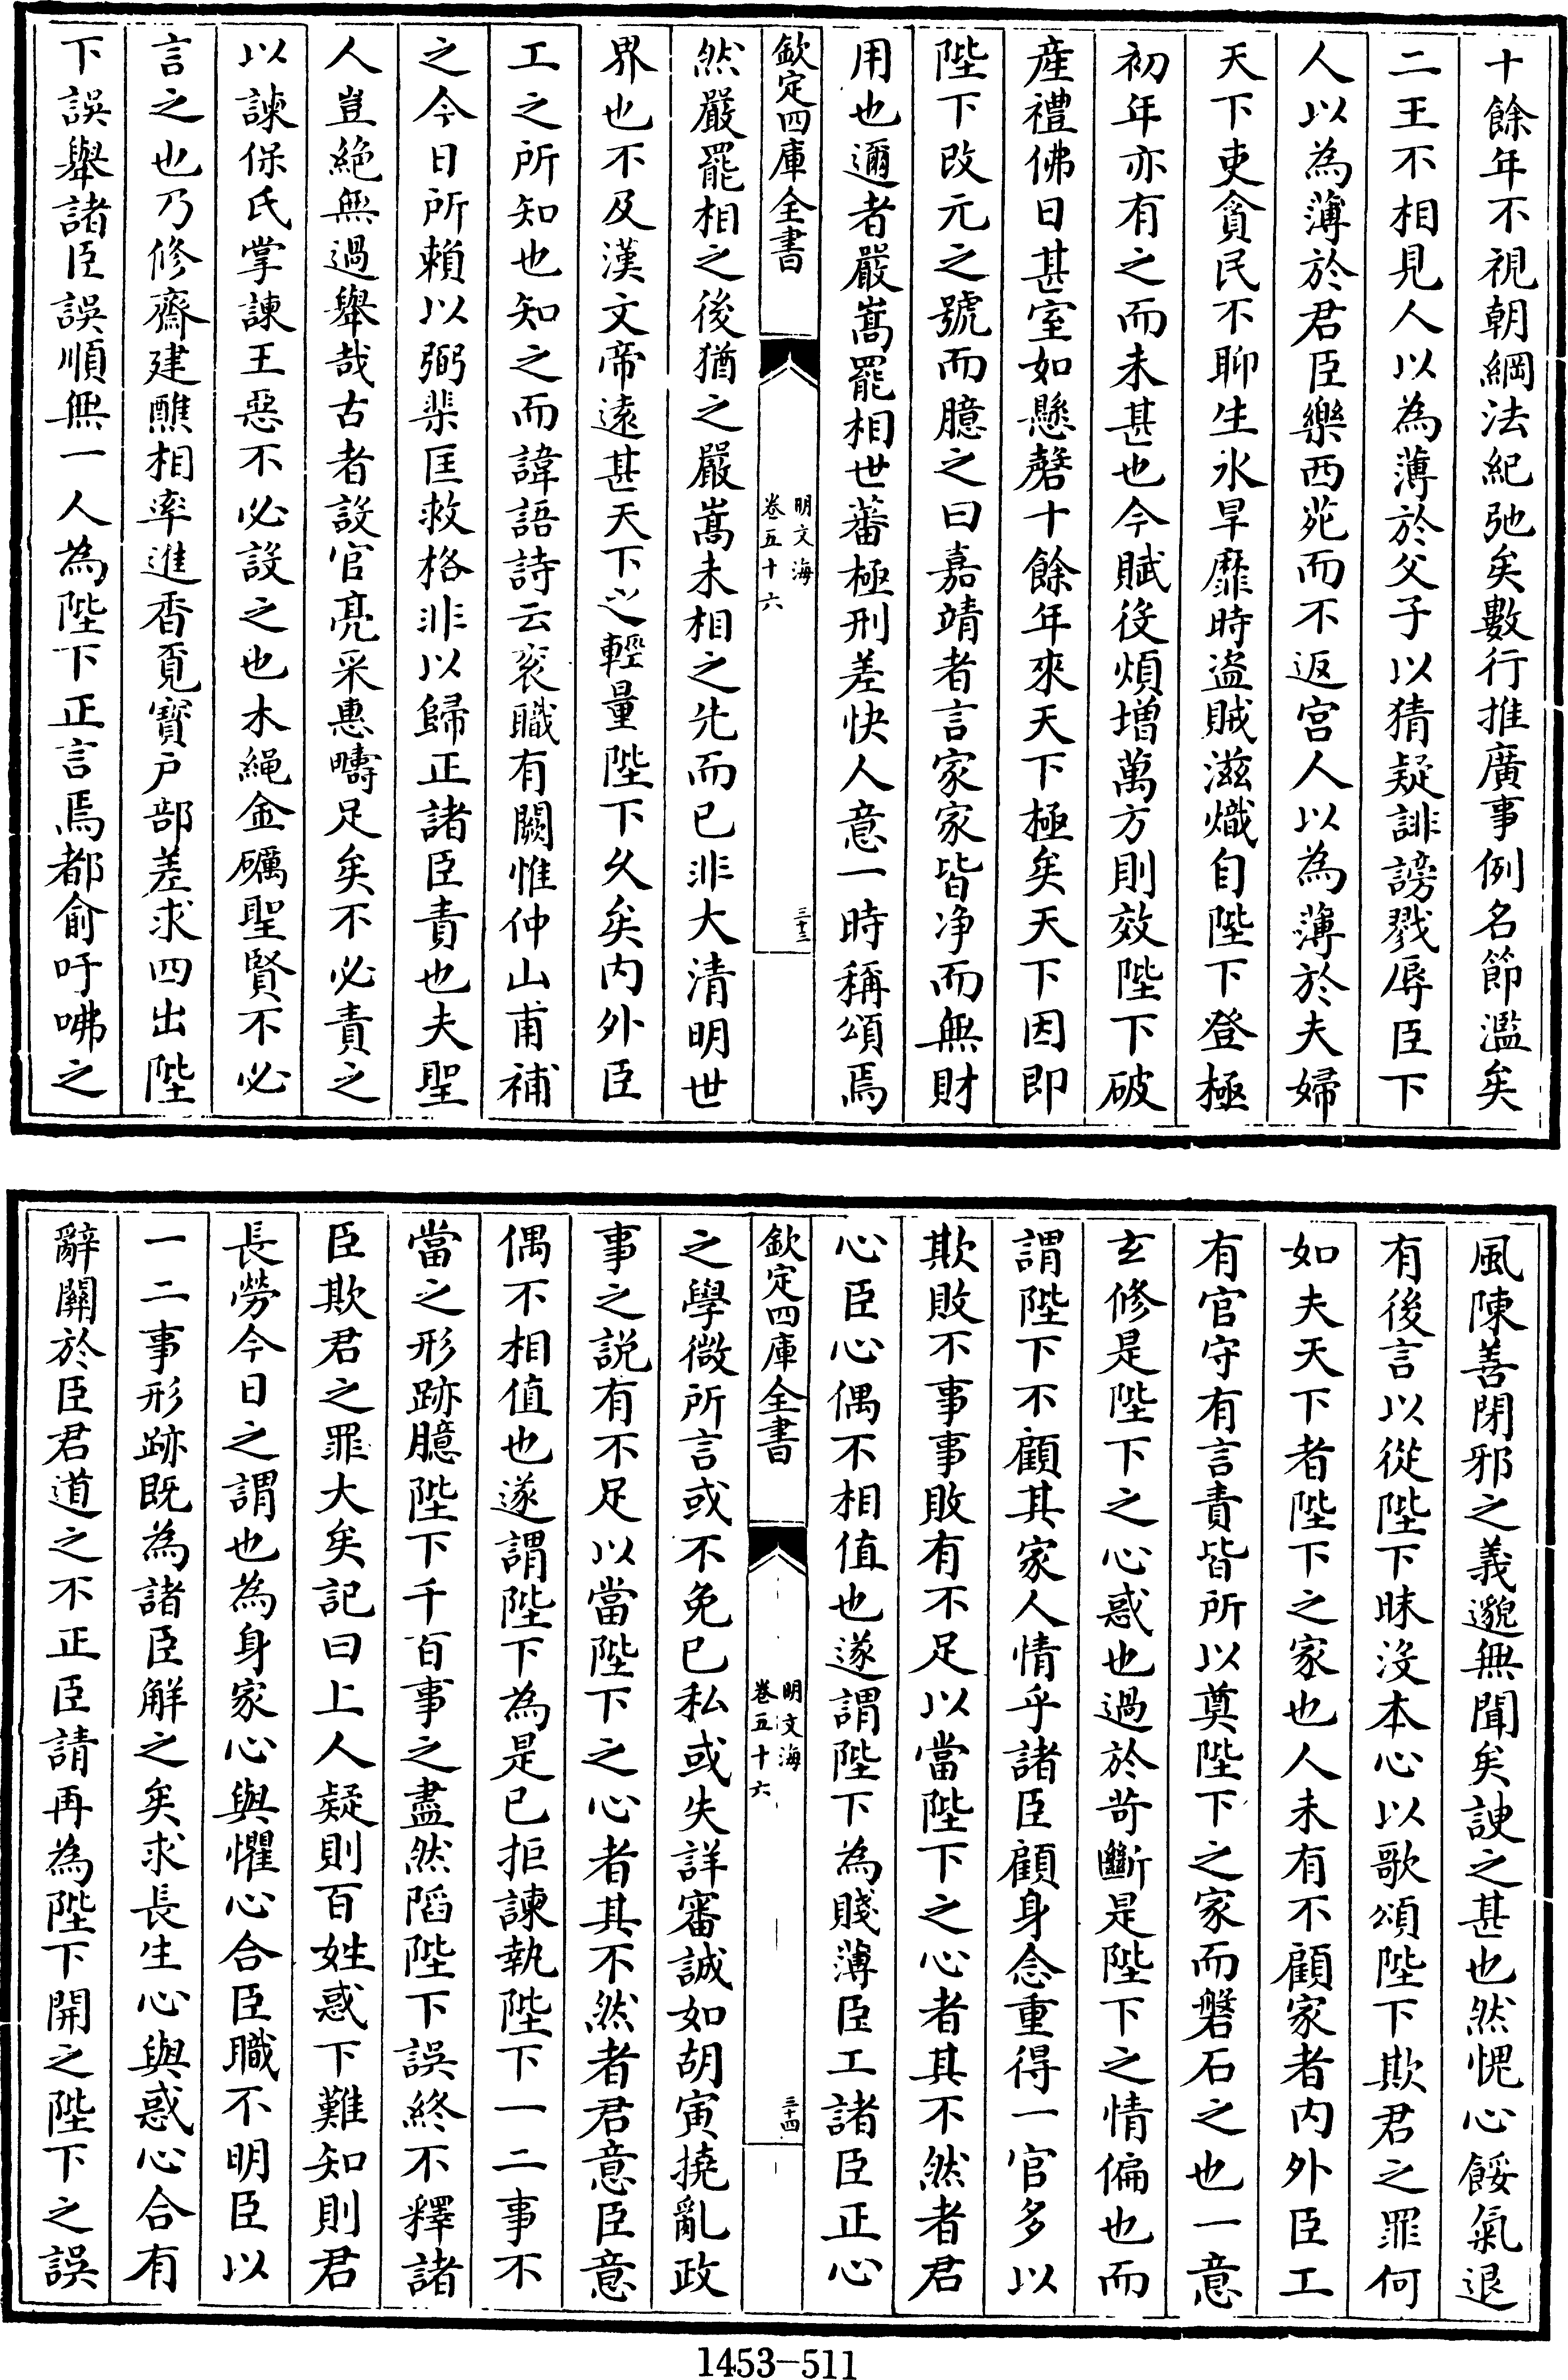 十餘年不視朝綱法紀弛矣數行推廣事例名節濫矣
二王不相見人以為薄於父子以猜疑誹謗戮辱臣下
人以為薄於君臣樂西苑而不返宫人以為薄於夫婦
天下吏貪民不聊生水旱靡時盗賊滋熾自陛下登極
初年亦有之而未甚也今賦役煩增萬方則效陛下破
産禮佛日甚室如懸磬十餘年來天下極矣天下因即
陛下改元之號而臆之曰嘉靖者言家家皆净而無財
用也邇者嚴嵩罷相世蕃極刑差快人意一時稱頌焉
欽定四庫全書
明文海
卷五十六
三十三
然嚴罷相之後猶之嚴嵩未相之先而已非大清明世
界也不及漢文帝遠甚天下之輕量陛下久矣内外臣
工之所知也知之而諱語詩云衮職有闕惟仲山甫補
之今日所賴以弼棐匡救格非以歸正諸臣責也夫聖
人豈絶無過舉哉古者設官亮采惠疇足矣不必責之
以諫保氏掌諫王惡不必設之也木繩金礪聖賢不必
言之也乃修齋建醮相率進香覔寳户部差求四出陛
下誤舉諸臣誤順無一人為陛下正言焉都俞吁咈之
風陳善閉邪之義邈無聞矣諛之甚也然愧心餒氣退
有後言以從陛下昧没本心以歌頌陛下欺君之罪何
如夫天下者陛下之家也人未有不顧家者内外臣工
有官守有言責皆所以奠陛下之家而磐石之也一意
玄修是陛下之心惑也過於苛斷是陛下之情偏也而
謂陛下不顧其家人情乎諸臣顧身念重得一官多以
欺敗不事事敗有不足以當陛下之心者其不然者君
心臣心偶不相值也遂謂陛下為賤薄臣工諸臣正心
欽定四庫全書
明文海
卷五十六
三十四
之學微所言或不免已私或失詳審誠如胡寅撓亂政
事之説有不足以當陛下之心者其不然者君意臣意
偶不相值也遂謂陛下為是已拒諫執陛下一二事不
當之形跡臆陛下千百事之盡然䧟陛下誤終不釋諸
臣欺君之罪大矣記曰上人疑則百姓惑下難知則君
長勞今日之謂也為身家心與懼心合臣職不明臣以
一二事形跡既為諸臣解之矣求長生心與惑心合有
辭關於臣君道之不正臣請再為陛下開之陛下之誤
1453-511